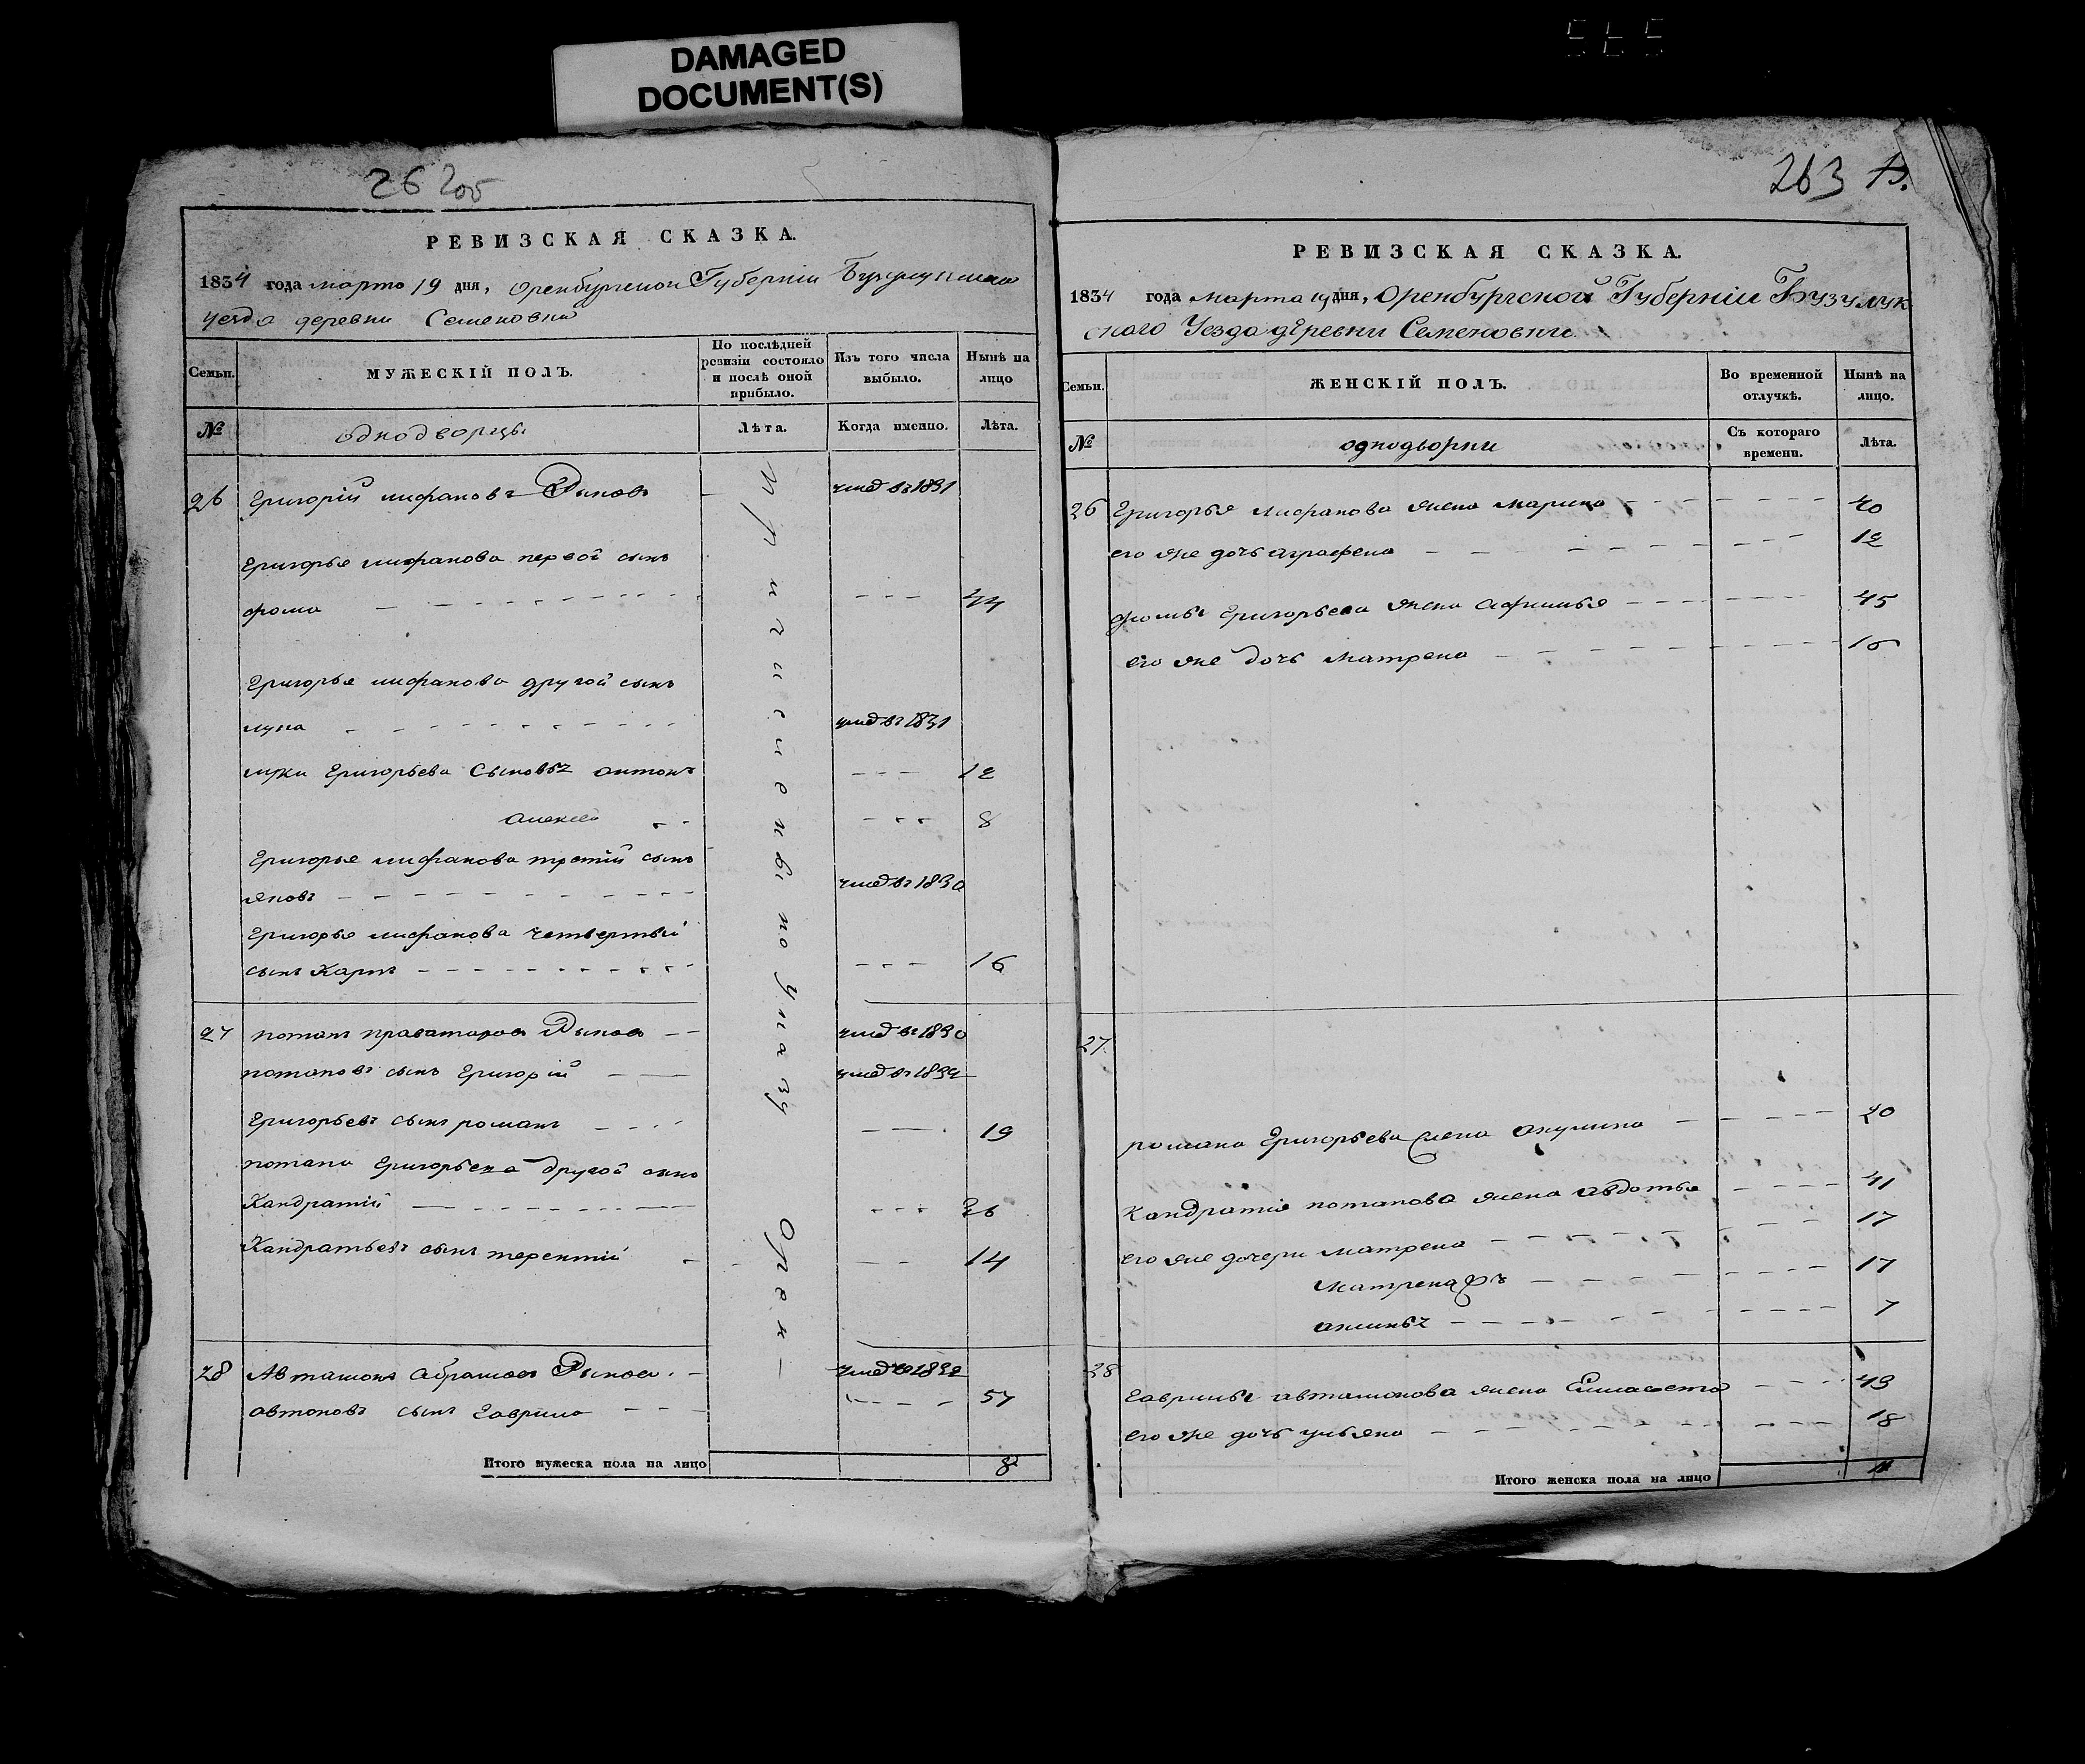 DAMAGED
DOCUMENT(S)
565
262 об
РЕВИЗСКАЯ СКАЗКА.
1834 года марта 19 дня, Оренбургской Губернiи Бузулукскаго
уезда деревни Семеновки
Семьи.
МУЖЕСКІЙ ПОЛЪ.
По послѣдней ревизіи состояло и послѣ оной прибыло.
Изъ того числа выбыло.
Нынѣ на лицо
№
однодворцы
Лѣта.
Когда именно.
Лѣта.
26 Григорiй Динов умед въ 1831
Григорья первой сынъ
фома 44
Григорья другой сынъ
лука умед въ 1831
луки Григорьева сыновъя антонъ 12
алексей 8
Григорья третiй сынъ
яковъ умед въ 1830
Григорья четвертый
сынъ Карпъ 16
27 потапъ умед въ 1830
потаповъ сынъ Григорiй умед въ 1832
Григорьевъ сынъ романъ 19
потапа Григорьева другой сынъ
Кандратiй 36
Кандратьевъ сынъ терентiй 14
28 Автамонъ абрамовъ умед въ 1832
автоновъ сынъ гаврило 57
Причисленъ по Указу Орен
Итого мужеска пола на лицо 8
263
РЕВИЗСКАЯ СКАЗКА.
1834 года марта 19 дня, Оренбургской Губернiи Бузулук
скаго Уезда деревни Семеновки.
Семьи.
ЖЕНСКІЙ ПОЛЪ.
Во временной отлучкѣ.
Нынѣ на лицо.
№
однодворки
Съ котораго времени.
Лѣта.
26 Григорья жена марина 40
его же дочь аграфена 12
фомы Григорьева жена афимья 45
его же дочь матрена 16
27
романа Григорьева жена акулина 20
Кандратiя потапова жена авдотья 41
его же дочери матрена 17
матрена 17
7
28
гаврилы автамонова жена Елисавета 43
его же дочь ульяна 18
Итого женска пола на лицо 11